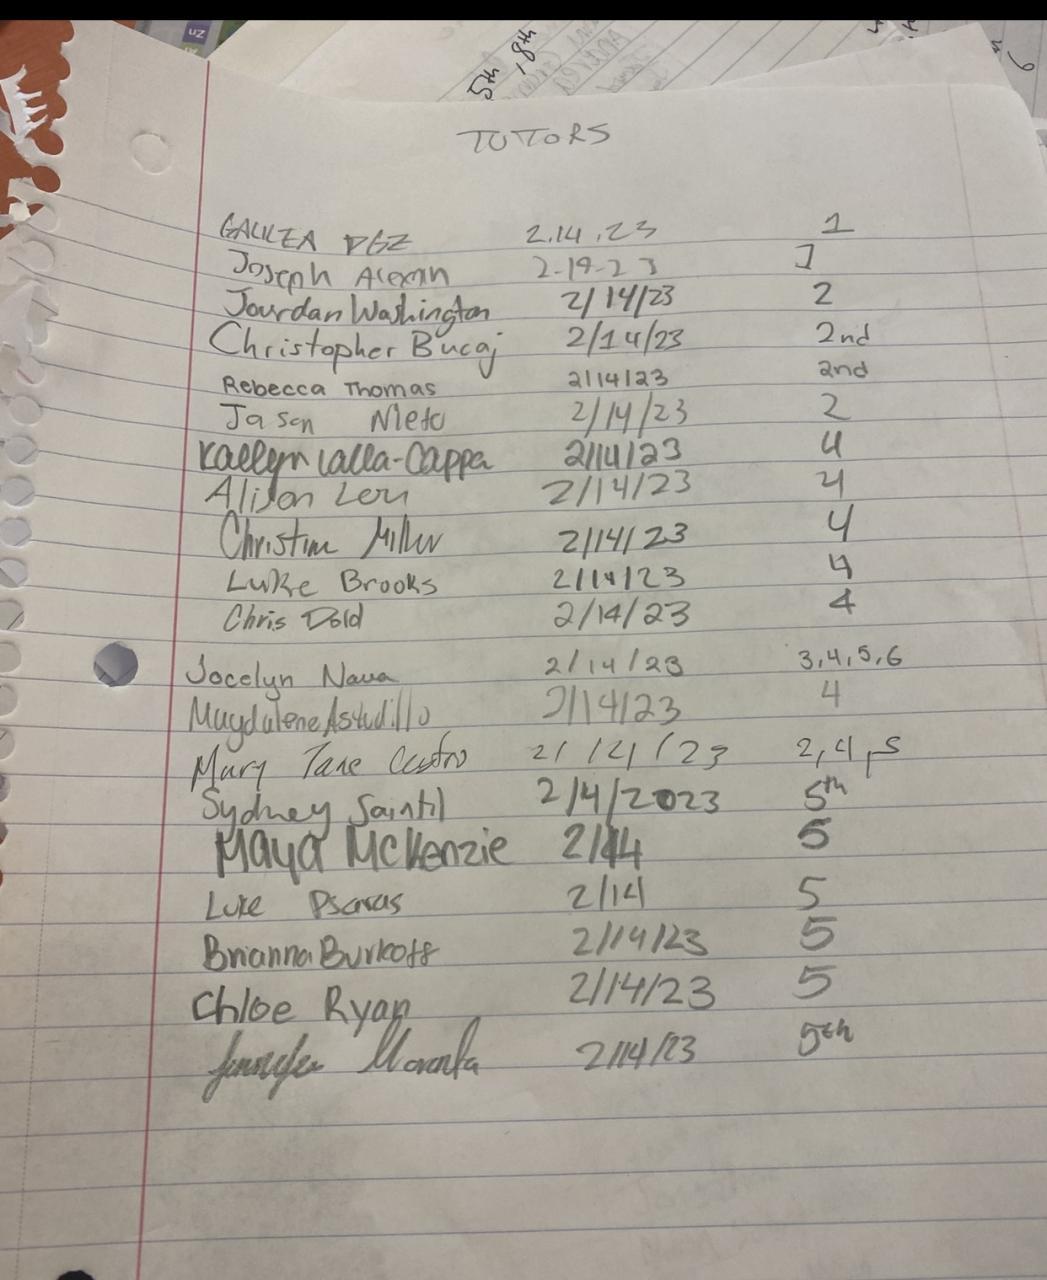 UZ
5th, 8th
TUTORS
GALILEA DGZ 2.14.23 1
Joseph 2-14-23 1
Jourdan Washington 2/14/23 2
Christopher Bucaj 2/14/23 2nd
Rebecca Thomas 2/14/23 2nd
Jason Nieto 2/14/23 2
Kaelyn Lalla-Cappa 2/14/23 4
Alison 2/14/23 4
Christine Miller 2/14/23 4
Luke Brooks 2/14/23 4
Chris Dold 2/14/23 4
Jocelyn Nava 2/14/23 3,4,5,6
Magdalene Astudillo 2/14/23 4
Mary Jane Castro 2/14/23 2,4,5
Sydney Saintil 2/4/2023 5th
Maya McKenzie 2/14 5
Luke Psaras 2/14 5
Brianna Burkoff 2/14/23 5
Chloe Ryan 2/14/23 5
Jennifer 2/14/23 5th